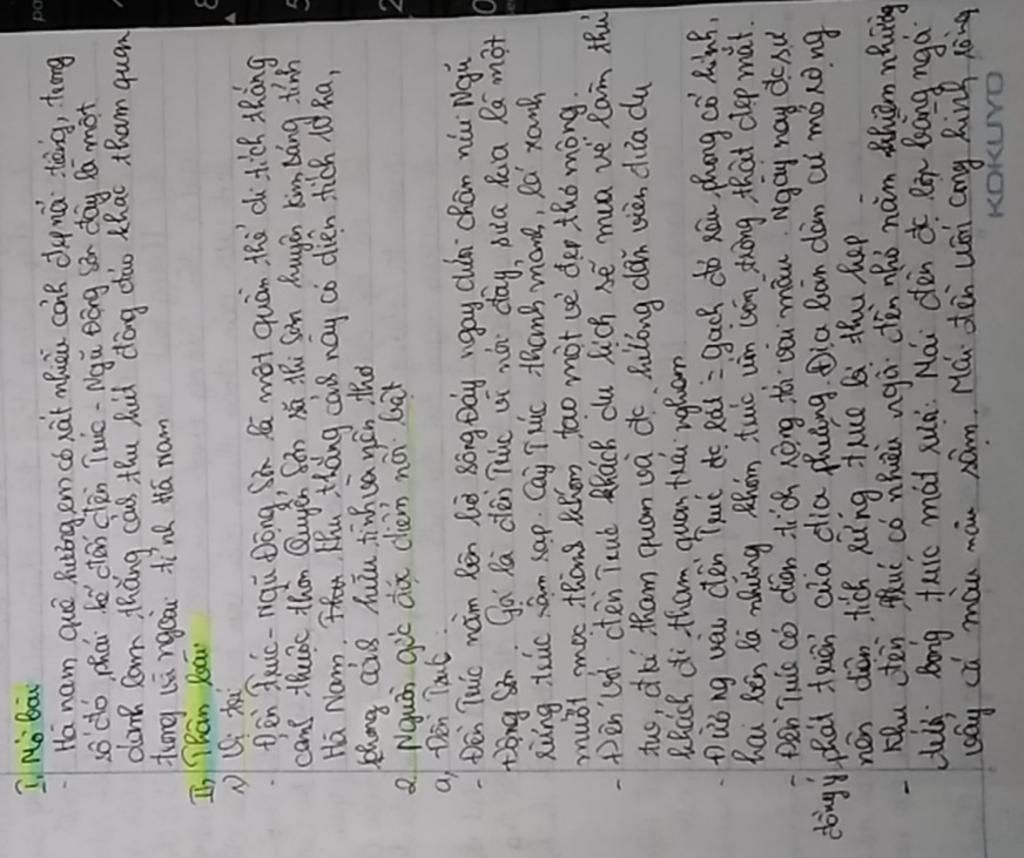 I, Mở bài
- Hà nam quê hương em có rất nhiều cảnh đẹp nổi tiếng, trong
số đó phải kể đến đền Trúc - Ngũ Động Sơn đây là một
danh lam thắng cảnh thu hút đông đảo khác tham quan
trong và ngoài tỉnh Hà Nam
II, Thân bài
1) Vị trí
- Đền Trúc - Ngũ Động Sơn là một quần thể di tích thắng
cảnh thuộc thôn Quyển Sơn xã thi Sơn huyện kim bảng tỉnh
Hà Nam. Khu thắng cảnh này có diện tích 10 ha,
phong cảnh hữu tình và nên thơ
2. Nguồn gốc đặc điểm nổi bật
a, Đền Trúc
- Đền Trúc nằm bên bờ sông Đáy ngay dưới chân núi Ngũ
Động Sơn. Gọi là đền Trúc vì nơi đây, xưa kia là một
rừng trúc rậm rạp. Cây Trúc thanh mảnh, lá xanh
mướt mọc thành khóm tạo một vẻ đẹp thơ mộng
- Đến với đền Trúc khách du lịch sẽ mua vé làm thủ
tục để tham quan và đc hướng dẫn viên đưa du
khách đi tham quan trải nghiệm
- Đường vào đền Trúc đc lát = gạch đỏ rêu phong cổ kính,
hai bên là những khóm trúc uốn vốn trông thật đẹp mắt.
- Đền Trúc có diện tích rộng tới vài mẫu. Ngày nay đc sự
đồng ý phát triển của địa phương. Địa bàn dân cư mở rộng
nên diện tích rừng trúc bị thu hẹp
- Khu đền Trúc có nhiều ngôi đền nhỏ nằm khiêm nhường
dưới bóng trúc mát rượi. Mái đền đc lợp bằng ngói
vảy cá màu nâu sậm. Mái đền uốn cong hình rồng
KOKUYO